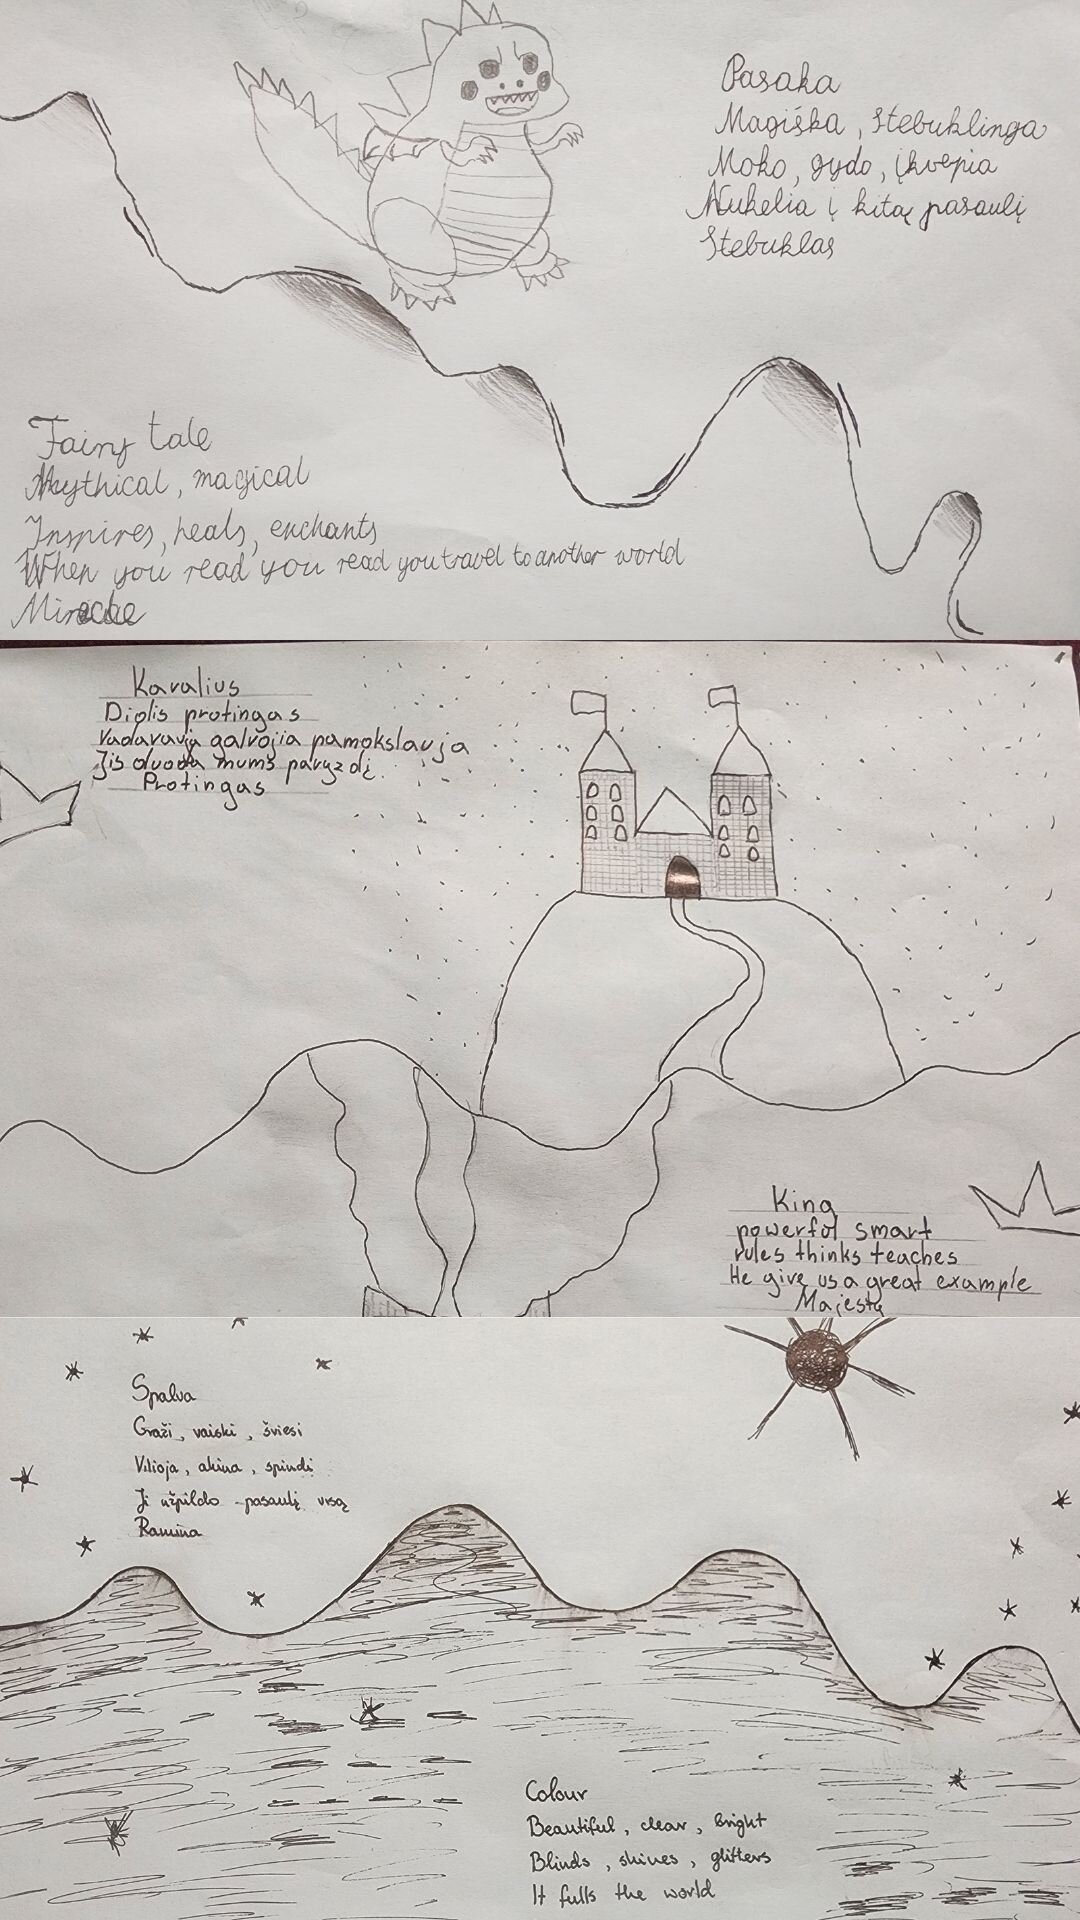 Pasaka
Magiška, stebuklinga
Moko, gydo, įkvepia
Nukelia į kitą pasaulį
Stebuklas
Fairy tale
Mythical, magical
Inspires, heals, enchants
When you read you read you travel to another world
Miracle
Karalius
Didis protingas
Vadavauja galvojia pamokslauja
Jis duoda mums pavyzdį.
Protingas
King
powerful smart
rules thinks teaches
He give us a great example
Majesty
Spalva
Graži, vaiski, šviesi
Vilioja, akina, spindi
Ji užpildo pasaulį visą
Ramina
Colour
Beautiful, clear, bright
Blinds, shines, glitters
It fulls the world